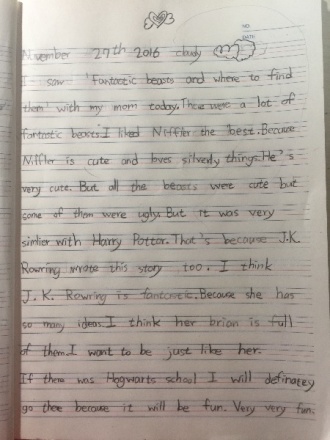 November 27th 2016 cloudy
I saw 'fantastic beasts and where to find
them' with my mom today. There were a lot of
fantastic beasts. I liked Niffler the best. Because
Niffler is cute and loves silverly things. He's
very cute. But all the beasts were cute but
some of them were ugly. But it was very
similer with Harry Potter. That's because J.K.
Rowring wrote this story too. I think
J.K. Rowring is fantastic. Because she has
so many ideas. I think her brian is full
of them. I want to be just like her.
If there was Hogwarts school I will definatey
go thee because it will be fun. Very very fun.